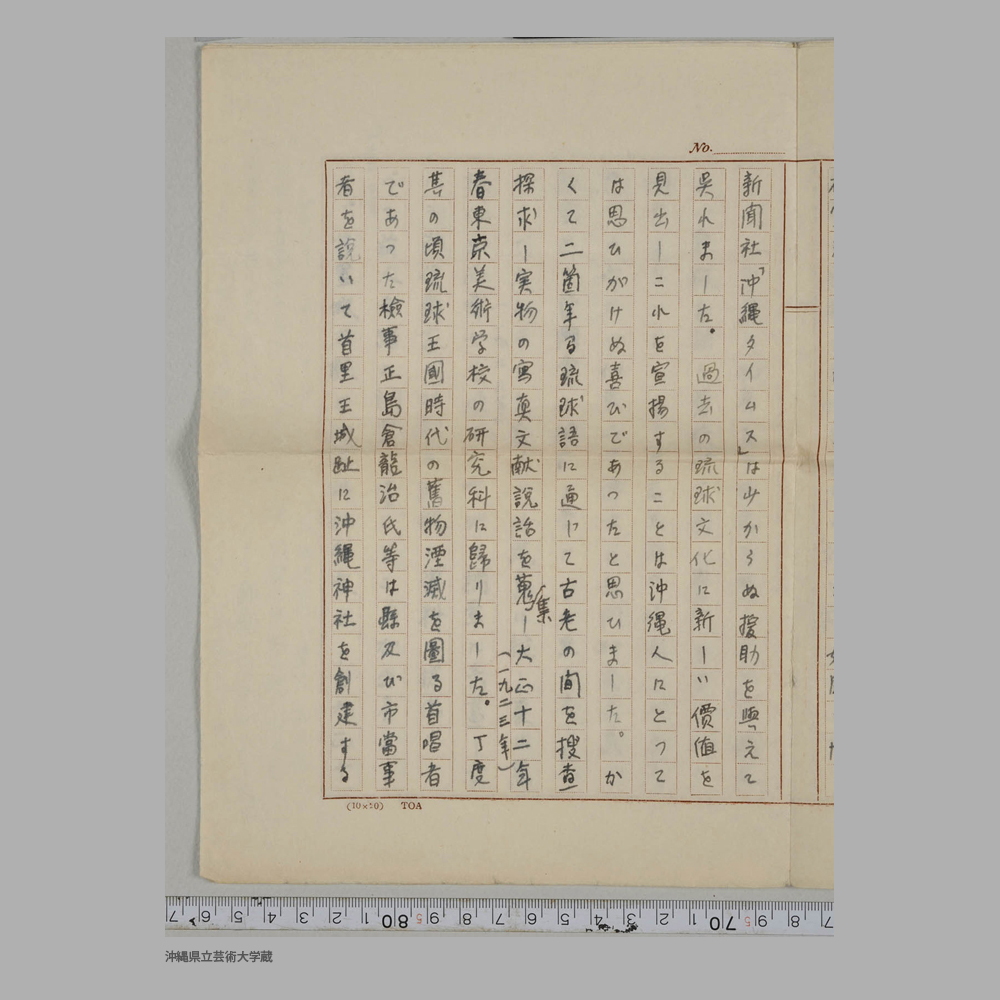 No.
新聞社「沖縄タイムス」は少からぬ援助を與えて
呉れました。過去の琉球文化に新しい價値を
見出しこれを宣揚することは沖縄人にとつて
は思ひがけぬ喜びであつたと思ひました。か
くて二箇年る琉球語に通じて古老の間を捜査
探求し実物の寫真文献説話を蒐集し大正十二年
(一九二三年)
春東京美術学校の研究科に歸りました。丁度
其の頃琉球王國時代の舊物湮滅を圖る首唱者
であつた檢事正島倉龍治氏等は縣及び市當事
者を説いて首里王城趾に沖縄神社を創建する
(10×20) TOA
7 6 5 4 3 2 1 80 9 8 7 6 5 4 3 2 1 70 9 8 7
沖縄県立芸術大学蔵